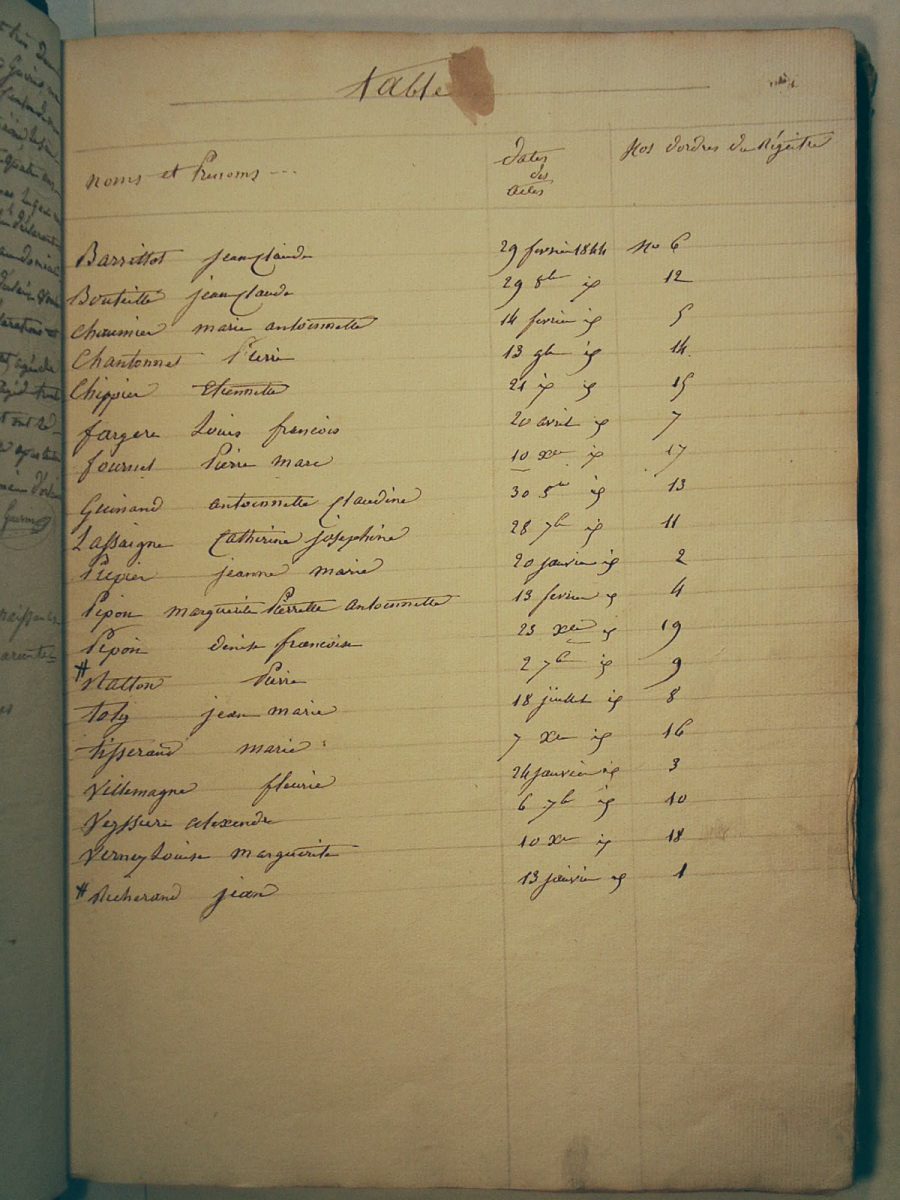 Table
Noms et Prenoms ---
Dates des actes
Nos d'ordres du Régistre
Barsittot jean Claude 29 fevrier 1844 No 6
Bouteille jean Claude 29 8bre id 12
Chaumier marie antoinnette 14 fevrier id 5
Chantonnet Pierre 13 9bre id 14.
Chippier Etiennette 21 id id 15
fargere Louis francois 20 avril id 7
fournet Pierre marc 10 Xbre id 17
Guinand antoinnette Claudine 30 8bre id 13
Lassaigne Catherine josephine 28 7bre id 11
Pupier jeanne marie 20 janvier id 2
Pipon marguerite Pierrette antoinnette 13 fevrier id 4
Pipon denise francoise 23 Xbre id 19
# Natton Pierre 2 7bre id 9
toly jean marie 18 juillet id 8
tisserand marie 7 Xbre id 16
Villemagne fleurie 24 janvier id 3
Veyssiere alexandre 6 7bre id 10
Verney Louise marguerite 10 Xbre id 18
# Richerand jean 13 janvier id 1